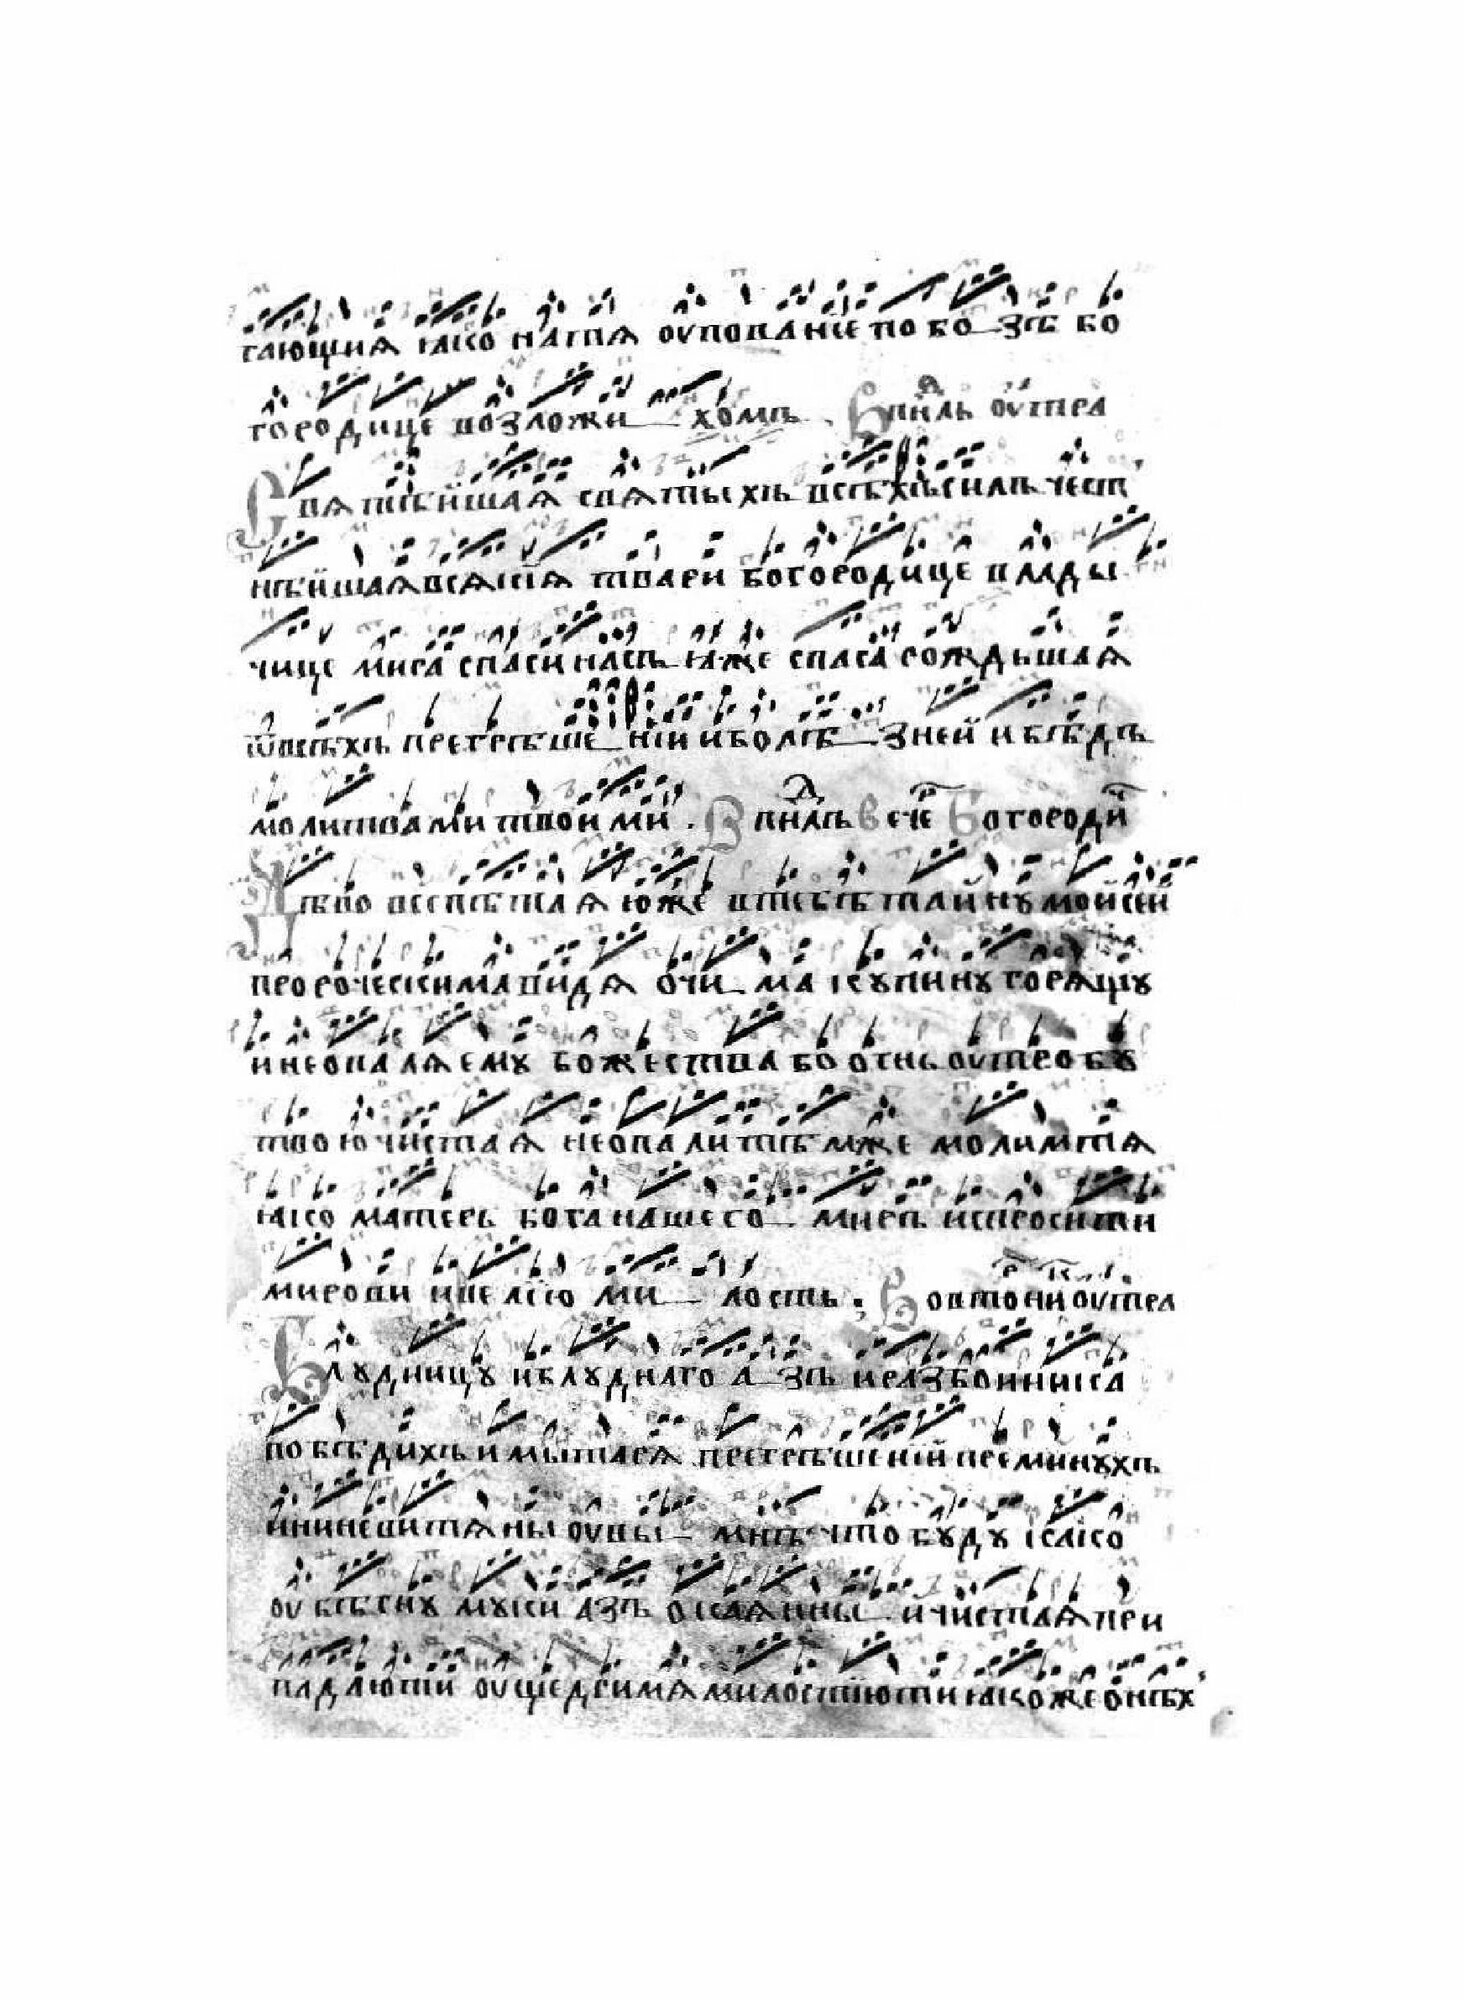 гающия ꙗко на тя оупование по бо зѣ бо
городице возложи хомъ . В пнⷣль оутра
Святѣйшая святыхъ всѣхъ силъ чест
нѣйшая всякїя твари богородице влады
чице мира спаси насъ ꙗже спаса рождьшая
ѿ всѣхъ прегрѣше нїи и болѣ зней и бѣдъ
молитвами твоими . В пнⷣлъ вече Богороди
Дѣво всепѣтая юже в тебѣ тайну мойсей
пророческима видя очи ма купину горящу
и неопаляему божества бо огнь оутробу
твою чистая не опали тѣмже молимтя
ꙗко матерь бога нашего миръ испросити
мирови и велїю ми лость : Во втони оутра
Блудницу и блуднаго а зъ и разбоиника
побѣдихъ и мытаря прегрѣшенїй преминухъ
и ниневитяны оувы мнѣ что буду како
оубѣгну муки азъ окаянны и чистая при
падаюти оущедримя милостїюти ꙗкоже онѣх